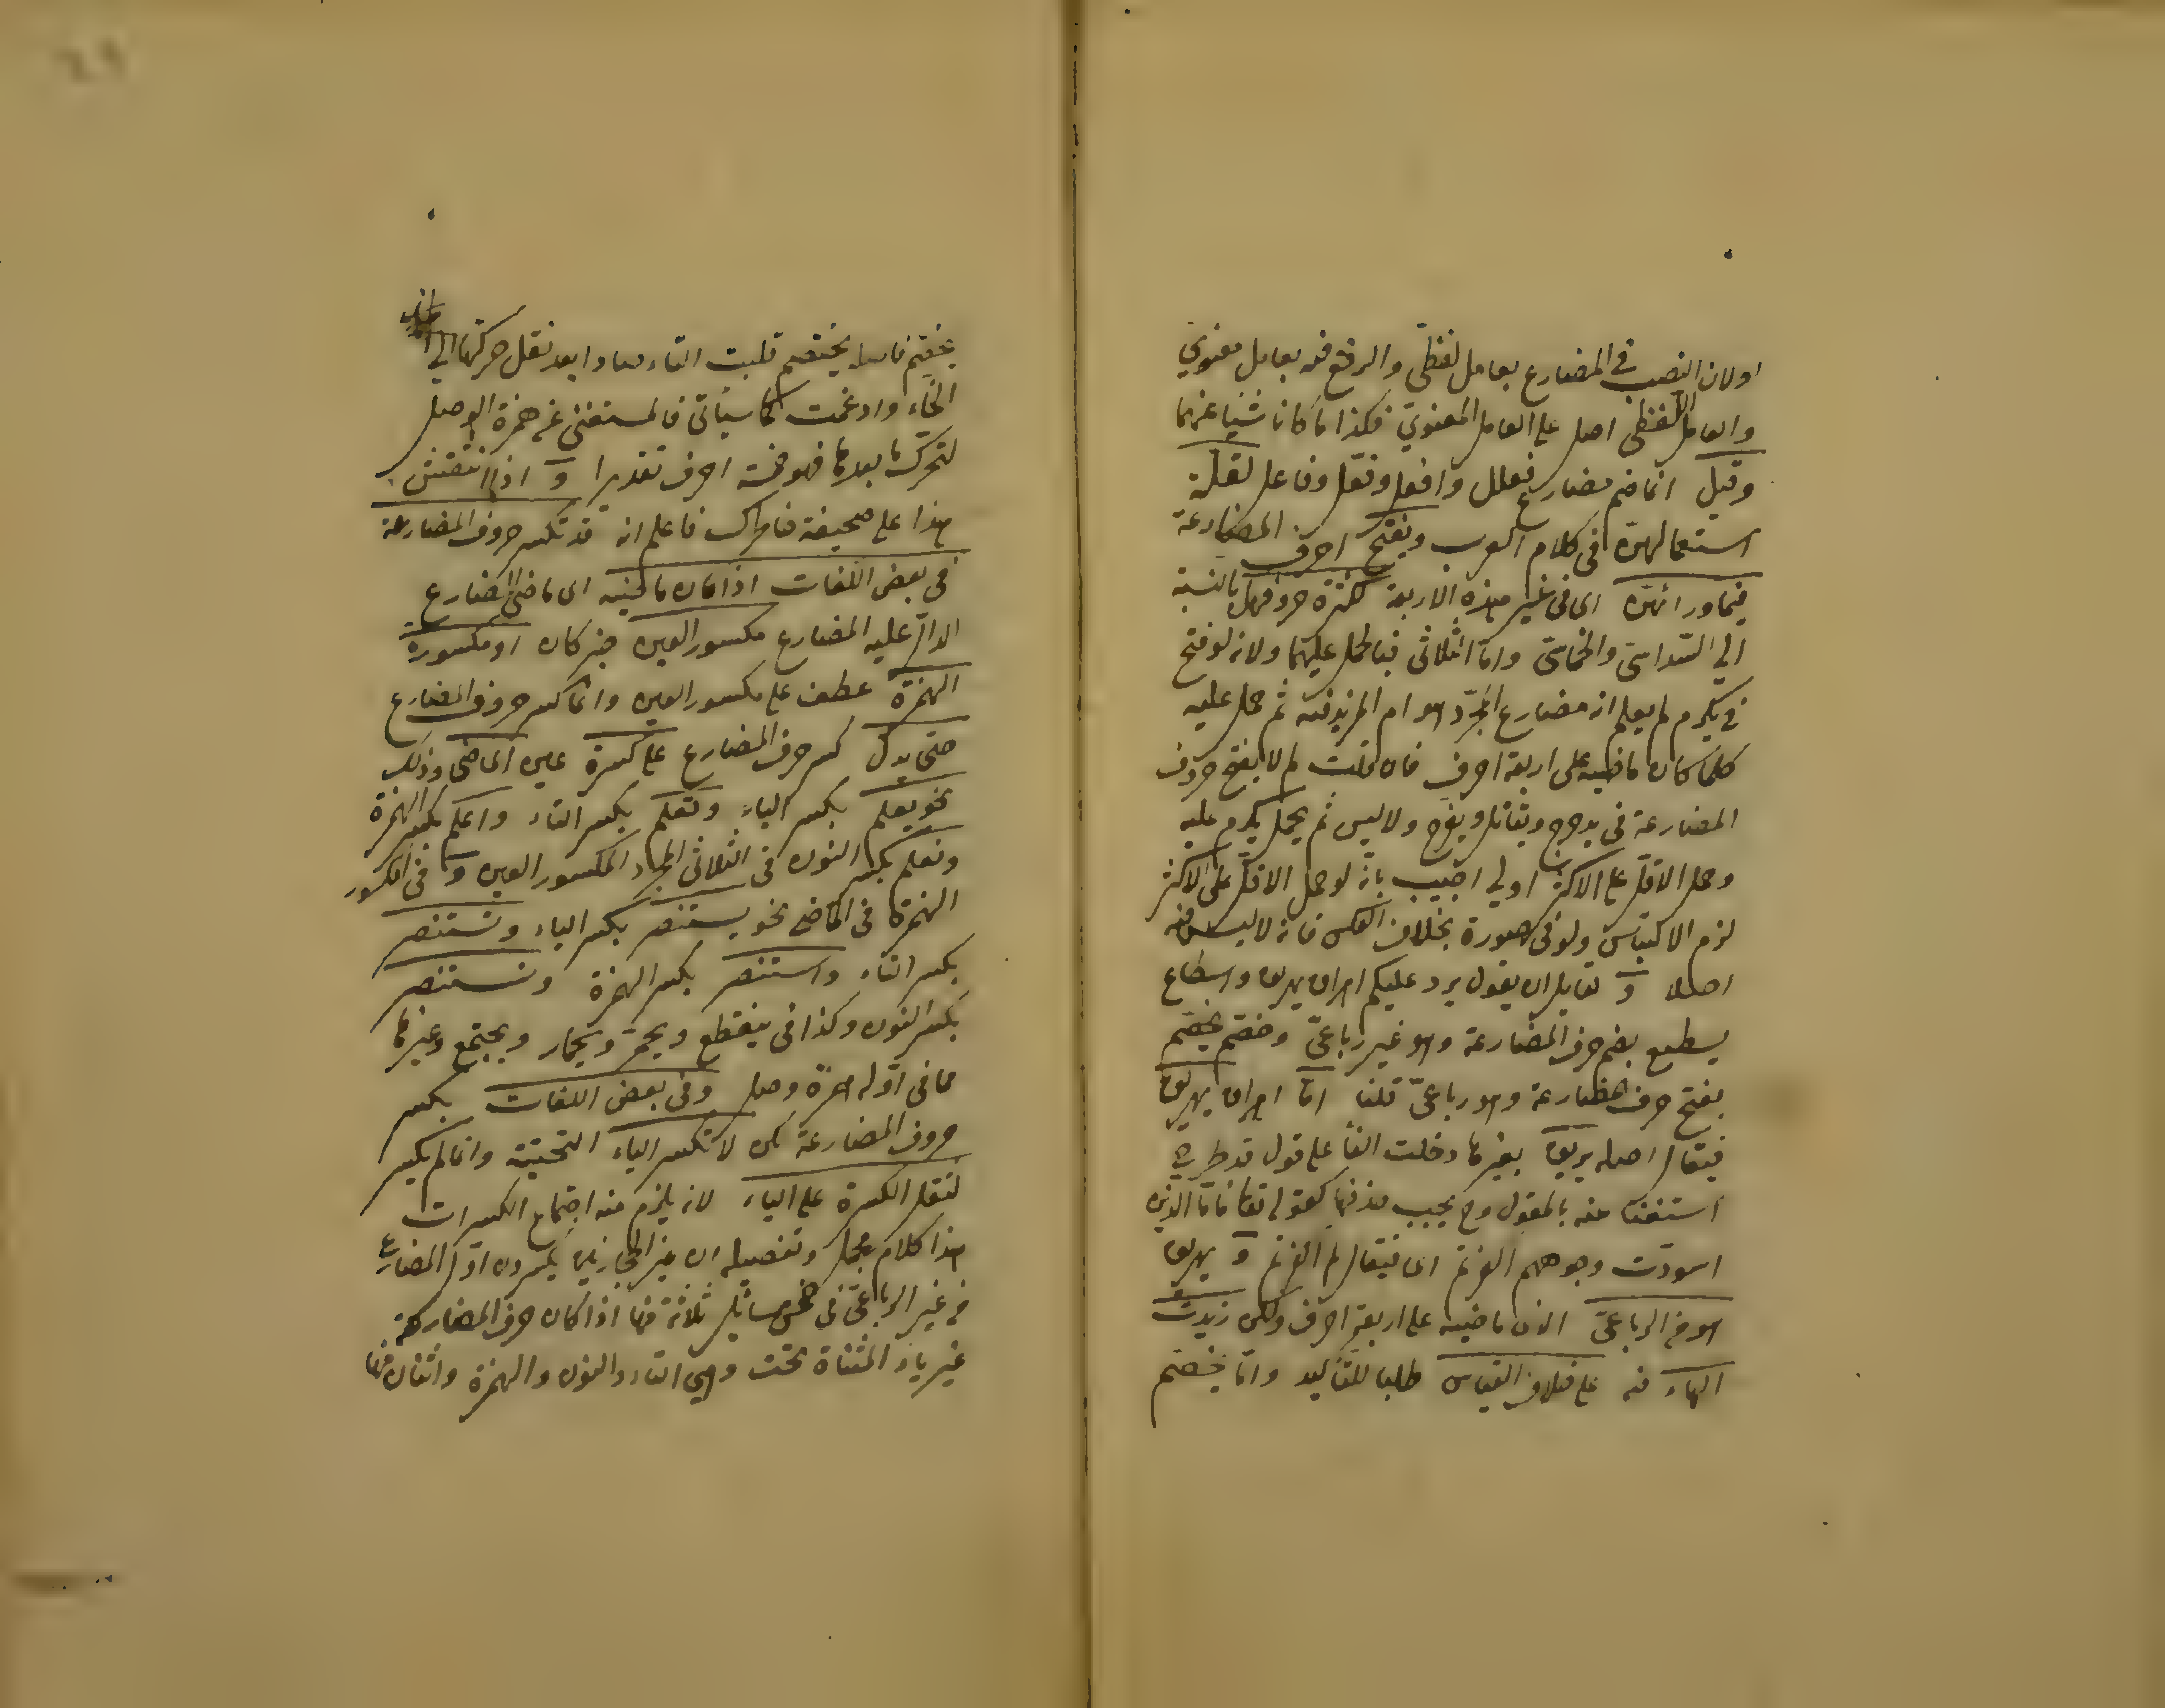 او لان النصب في المضارع بعامل لفظي والرفع فيه بعامل معنوي
والعامل اللفظي اصل على العامل المعنوي فكذا ما كانا شيئا عنهما
وقيل انما ضم مضارع فعلل وافعل وفعّل وفاعل لقلة
استعمالهنّ في كلام العرب ويفتح احرف المضارعة
فيما ورائهنّ اى في غير هذه الاربعة لكثرة حروفهنّ بالنسبة
الى السّداسىّ والخماسىّ وامّا الثلاثى فبالحمل عليهما ولانه لو فتح
في يكرم لم يعلم انه مضارع المجرّد هو ام المزيد فيه ثم حمل عليه
كلما كان ماضيه على اربعة احرف فان قلت لم لا يفتح حروف
المضارعة فى يدحرج ويقاتل ويفرح ولا ليس ثم يحمل يكرم عليه
وحمل الاقل على الاكثر اولى اجيب بانّه لو حمل الاقل على الاكثر
لزم الالتباس ولو فى صورة بخلاف العكس فانه لا ليس فيه
اصلا و لقايل ان يقول يرد عليكم اهراق يهريق واسطاع
يسطيع بضم حرف المضارعة وهو غير رباعىّ وخصّم يخصّم
بفتح حرف المضارعة وهو رباعىّ قلنا امّا اهراق يهريق
فيقال اصله يريق بغيرها دخلت الفا على قول قد طرح
استغناء عنه بالمقول وح يجب حذفها كقوله تعالى فامّا الذين
اسودّت وجوههم اكفرتم اى فيقال لهم اكفرتم و يهريق
هو من الرباعىّ الان ماضيه على اربعة احرف ولكن زيدت
الهاء فيه على خلاف القياس طلبا للتأكيد وامّا يخصّم
يخصّم فاصله يختصم قلبت التاء صادا بعد نقل حركتها الى
الخاء وادغمت كما سيأتى فالمستغنى عن همزة الوصل
لتحرّك ما بعدها فهو خمسة احرف تقديرا و اذا انتقش
هذا على صحيفة خاطرك فاعلم انه قد تكسر حروف المضارعة
فى بعض اللغات اذا كان ماضيه اى ماضى المضارع
الدالّ عليه المضارع مكسور العين خبر كان او مكسورة
الهمزة عطف على مكسور العين وانما كسر حروف المضارع
حتى يدلّ كسر حرف المضارع على كسرة عين الماضى وذلك
نحو يعلم بكسر الياء وتعلم بكسر التاء واعلم بكسر الهمزة
ونعلم بكسر النون فى الثلاثى المجرّد المكسور العين و فى المكسور
الهمزة فى الماضى نحو يستنصر بكسر الياء وتستنصر
بكسر التاء واستنصر بكسر الهمزة ونستنصر
بكسر النون وكذا فى ينقطع ويحمرّ ويحمارّ ويجتمع وغيرها
مما فى اوّله همزة وصل وفى بعض اللغات بكسر
حروف المضارعة لكن لا تكسر الياء التحتيّة وانما لم يكسر
لثقل الكسرة على الياء لانه يلزم منه اجتماع الكسرات
هذا كلام مجمل وتفصيله ان غير الحجازيين يكسرون اوّل المضارع
من غير الرباعىّ فى خمس مسائل ثلاثة منها اذا كان حرف المضارعة
غير ياء المثناة تحت وهى التاء والنون والهمزة واثنان منها